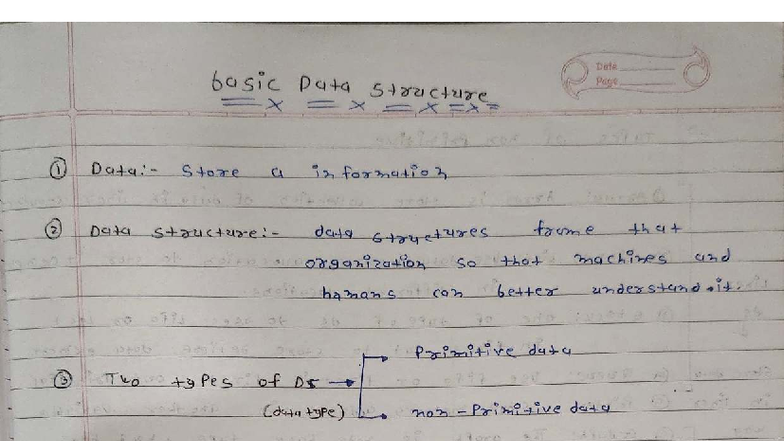 Date
Page
basic Data structure
① Data:- Store a information
② Data structure:- data structures frame that
organization so that machines and
humans can better understand it.
③ Two types of DS → Primitive data
(data type) non-Primitive data